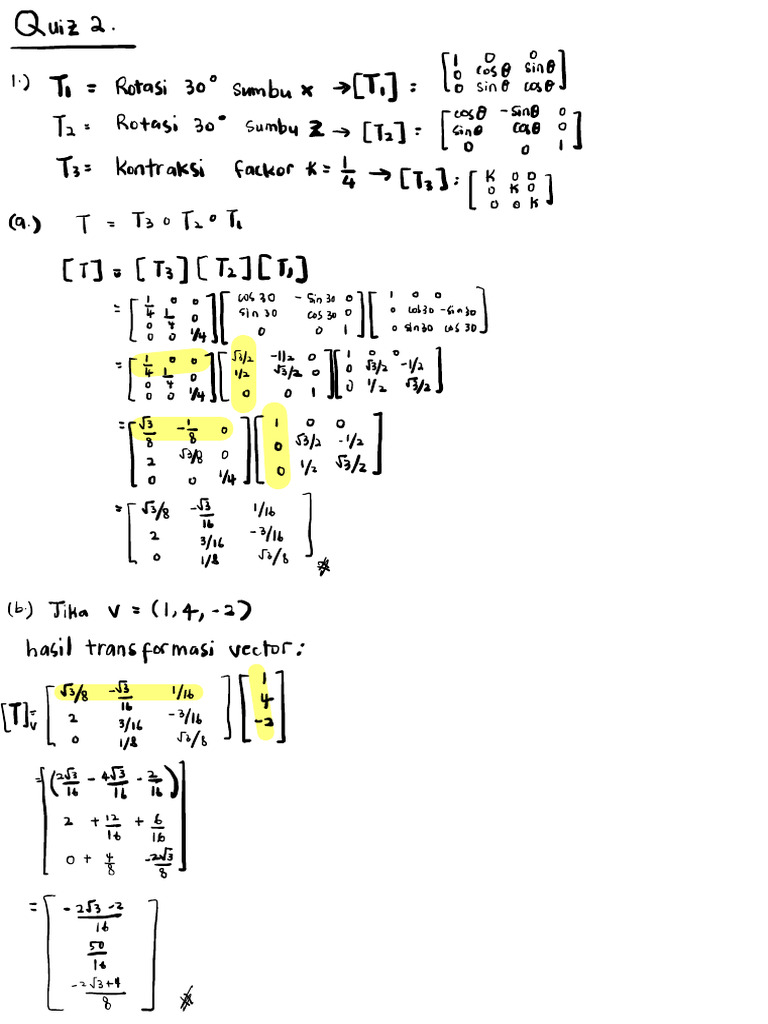 Quiz 2.
1.) T₁ = Rotasi 30° sumbu x → [T₁] = [1 0 0; 0 cos θ sin θ; 0 sin θ cos θ]
T₂ = Rotasi 30° sumbu Z → [T₂] = [cos θ -sin θ 0; sin θ cos θ 0; 0 0 1]
T₃ = Kontraksi factor K = 1/4 → [T₃] : [K 0 0; 0 K 0; 0 0 K]
(a.) T = T₃ ∘ T₂ ∘ T₁
[T] = [T₃] [T₂] [T₁]
= [1/4 0 0; 0 1/4 0; 0 0 1/4] [cos 30 -sin 30 0; sin 30 cos 30 0; 0 0 1] [1 0 0; 0 cos 30 -sin 30; 0 sin 30 cos 30]
= [1/4 0 0; 0 1/4 0; 0 0 1/4] [√3/2 -1/2 0; 1/2 √3/2 0; 0 0 1] [1 0 0; 0 √3/2 -1/2; 0 1/2 √3/2]
= [√3/8 -1/8 0; 2 √3/8 0; 0 0 1/4] [1 0 0; 0 √3/2 -1/2; 0 1/2 √3/2]
= [√3/8 -√3/16 1/16; 2 3/16 -3/16; 0 1/8 √3/8]
(b.) Jika v = (1, 4, -2)
hasil transformasi vector:
[T]v = [√3/8 -√3/16 1/16; 2 3/16 -3/16; 0 1/8 √3/8] [1; 4; -2]
= [(2√3/16 - 4√3/16 - 2/16); 2 + 12/16 + 6/16; 0 + 4/8 -2√3/8]
= [-2√3-2/16; 50/16; -2√3+4/8]